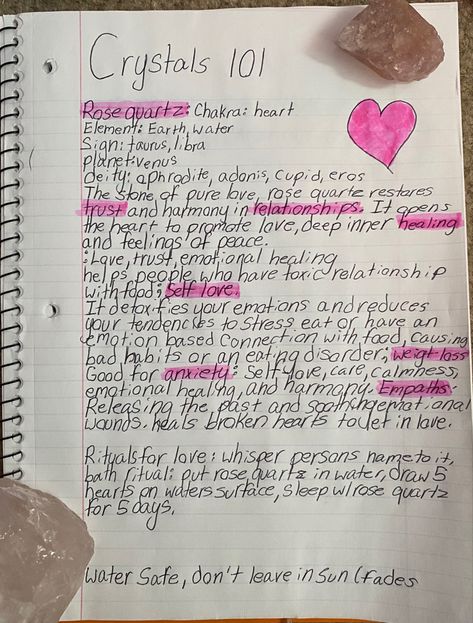 Crystals 101
Rose quartz: Chakra: heart
Element: Earth, water
Sign: taurus, libra
planet: venus
deity: aphrodite, adonis, cupid, eros
The stone of pure love, rose quartz restores
trust and harmony in relationships. It opens
the heart to promote love, deep inner healing
and feelings of peace.
: Love, trust, emotional healing
helps people who have toxic relationship
with food; Self love.
It detoxifies your emotions and reduces
your tendencies to stress eat or have an
emotion based connection with food, causing
bad habits or an eating disorder; weigt loss
Good for anxiety: Self love, care, calmness,
emotional healing, and harmony. Empaths.
Releasing the past and soothing emotional
wounds. heals broken hearts to let in love.
Rituals for love: whisper persons name to it,
bath ritual: put rose quartz in water, draw 5
hearts on waters surface, sleep w/ rose quartz
for 5 days.
Water Safe, don't leave in sun (fades